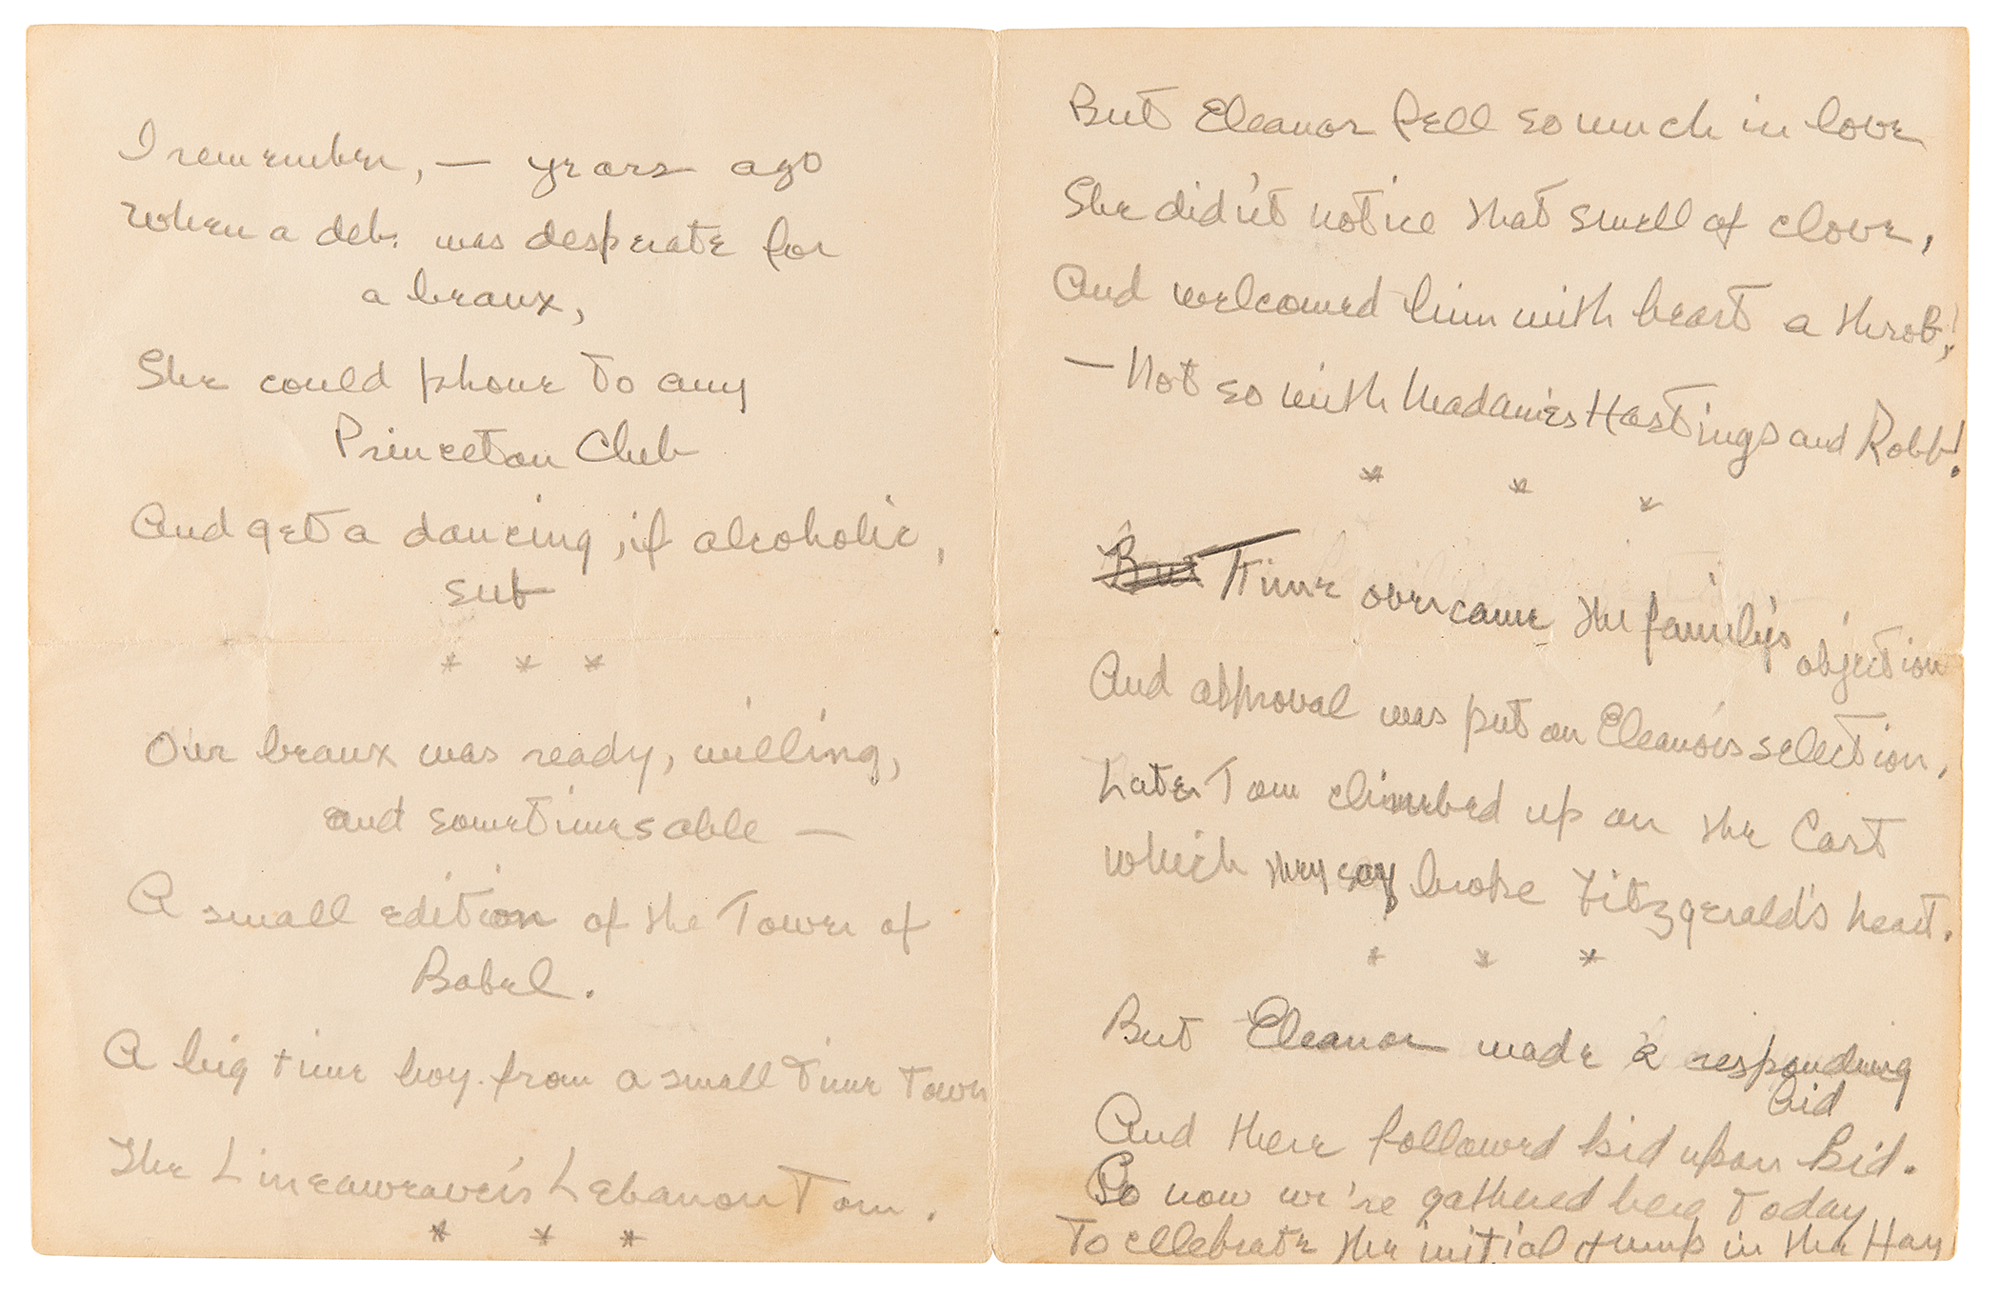 I remember, — years ago
When a deb. was desperate for
a beaux,
She could phone to any
Princeton Club
And get a dancing, if alcoholic,
sub
* * *
Our beaux was ready, willing,
and sometimes able —
A small edition of the Tower of
Babel.
A big time boy from a small time town
The Lineaweaver's Lebanon Tom.
* * *
But Eleanor fell so much in love
She didn't notice that smell of clove,
And welcomed him with heart a throb,!
— Not so with Madames Hastings and Robb!
* * *
But Time overcame the family's objection
And approval was put on Eleanor's selection,
Later Tom climbed up on the Cart
which they say broke Fitzgerald's heart.
* * *
But Eleanor made a responding
bid
And there followed bid upon bid.
So now we're gathered here today
To cellebrate the initial jump in the Hay